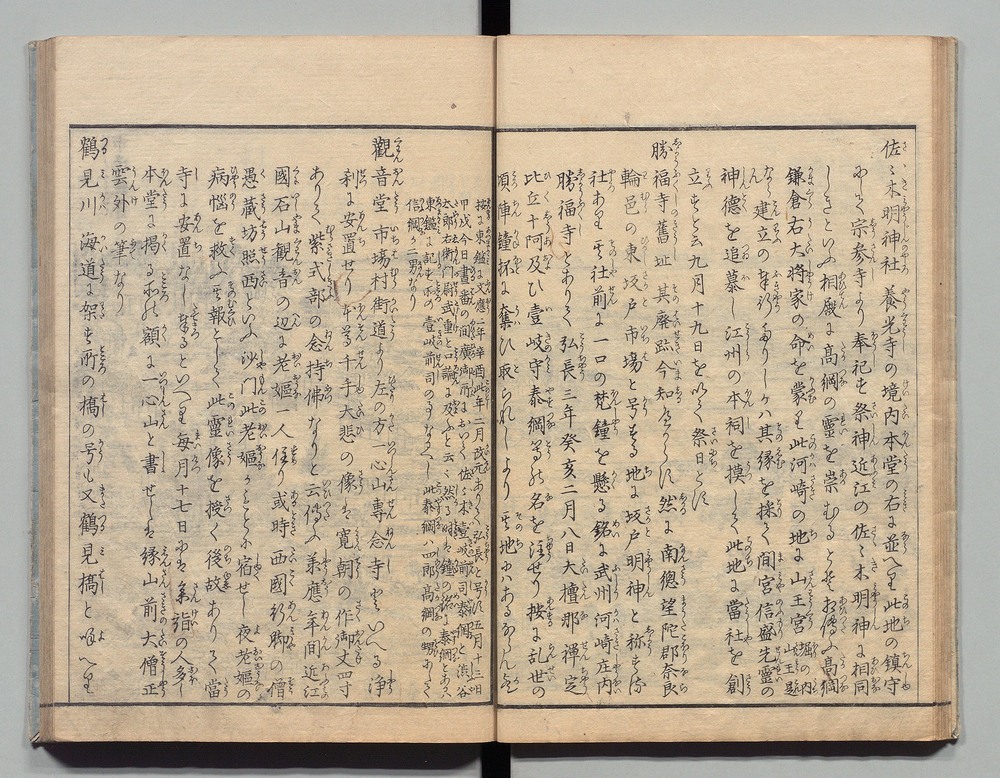 佐々木明神社 養光寺の境内本堂の右に並へり此地の鎮守
にして宗参寺より奉祀す祭神近江の佐々木明神に相同
しきといふ相殿に高綱の霊を崇むるとそお傳ふ高綱
鎌倉右大将家の命を蒙り此河崎の地に山王宮堀の内山王是
なり建立の
神徳を追慕し江州の本祠を摸して此地に當社を創
立すと云九月十九日を以て祭日とす
勝福寺舊址 其廃趾今知へからす然に南總望陀郡奈良
輪邑の東坂戸市場と号する地に坂戸明神と称する
社あり其社前に一口の梵鐘を懸る銘に武州河崎庄内
勝福寺とありて弘長三年癸亥二月八日大檀那禅定
比丘十阿及ひ壹岐守泰綱等の名を注せり按に乱世の
頃陣鐘抔に奪ひ取られしより其地にはあるならん
按に東鑑に文應二年辛酉此年二月改元ありて弘長と号す五月十三日
甲戌今日晝番の間廣御所において佐々木壹岐前司泰綱と渋谷
太郎左衛門尉武重と口論に及ふと云々然る時は鐘の銘に泰綱とあるハ
東鑑に記す所の壹岐前司の事なるへし此泰綱ハ四郎高綱の甥にして
信綱か二男なり
觀音堂 市場村街道より左の方一心山專念寺といへる浄
刹に安置せり本尊千手大悲の像は寛朝の作御丈四寸
ありて紫式部の念持佛なりと云傳ふ承應年間近江
國石山観音の辺に老嫗一人住り或時西國行脚の僧
愚蔵坊照西といふ沙門此老嫗かもとに宿せし夜老嫗の
病悩を救ふ其報として此霊像を授く後故ありて當
寺に安置なし奉るといへり毎月十七日には参詣の人多し
本堂に掲る所の額に一心山と書せしは縁山前大僧正
雲外の筆なり
鶴見川 海道に架す所の橋の号も又鶴見橋と唱へり